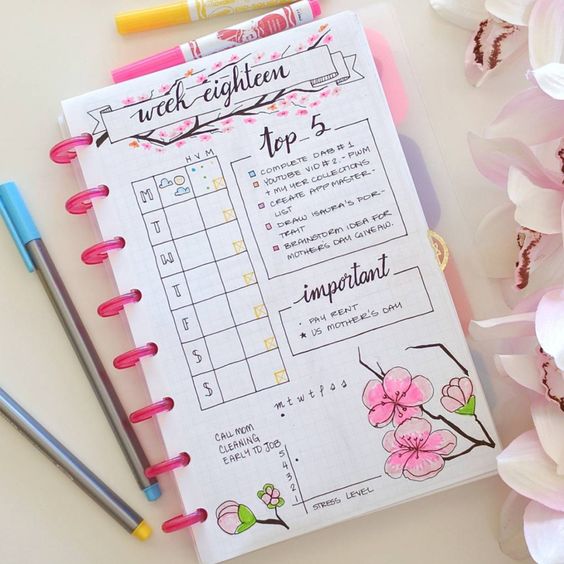 week eighteen
top 5
COMPLETE DAB #1
YOUTUBE VID #2.- PWM
+ MY YER COLLECTIONS
CREATE APP MASTER-
LIST
DRAW ISAURA'S POR-
TRAIT
BRAINSTORM IDEA FOR
MOTHERS DAY GIVEAW.
H. V. M
M
T
W
T
F
S
S
important
• PAY RENT
★ US MOTHER'S DAY
m t w t f s s
CALL MOM
CLEANING
EARLY TO JOB
5
4
3
2
1
STRESS LEVEL